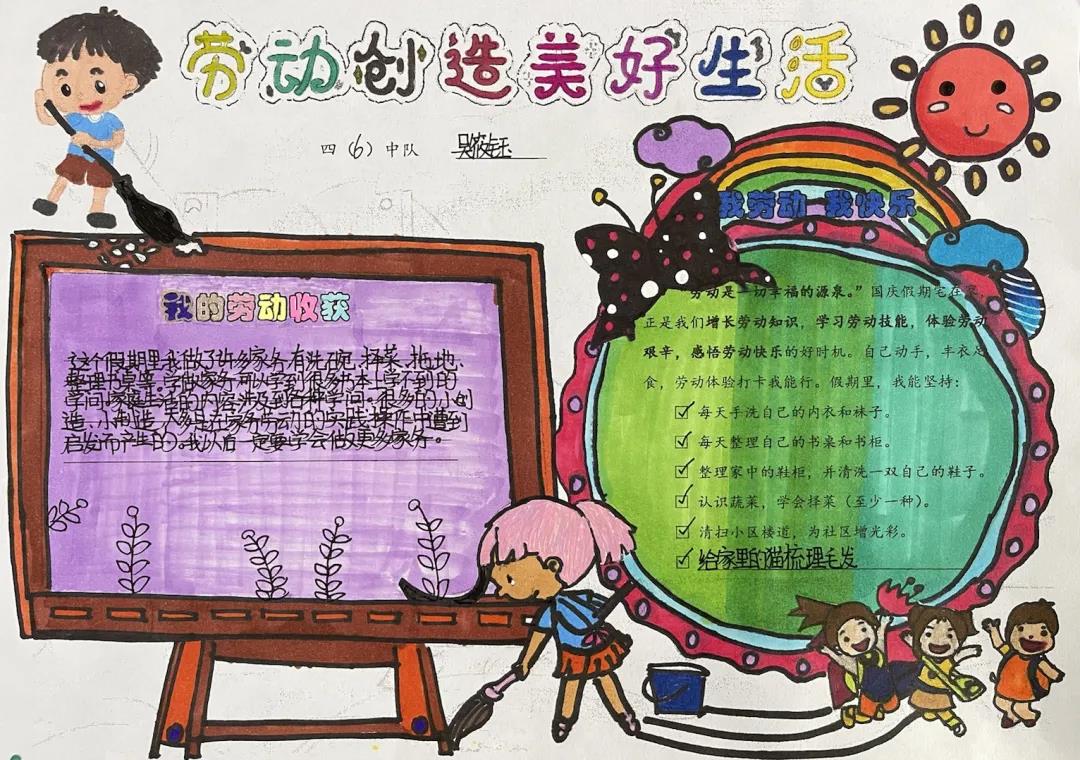 劳动创造美好生活
四（6）中队 吴筱钰
我的劳动收获
这个假期里我做了许多家务，有洗碗、择菜、拖地、
整理书桌等。学做家务可以学到很多书本上学不到的
学问，家庭生活的内容涉及到各种学问。很多的小创
造、小制造，大多是在家务劳动的实践操作中遭到
启发而产生的。我以后一定要学会做更多家务。
我劳动 我快乐
劳动是一切幸福的源泉。”国庆假期宅在家，
正是我们增长劳动知识，学习劳动技能，体验劳动
艰辛，感悟劳动快乐的好时机。自己动手，丰衣足
食，劳动体验打卡我能行。假期里，我能坚持：
☑每天手洗自己的内衣和袜子。
☑每天整理自己的书桌和书柜。
☑整理家中的鞋柜，并清洗一双自己的鞋子。
☑认识蔬菜，学会择菜（至少一种）。
☑清扫小区楼道，为社区增光彩。
☑给家里的猫梳理毛发